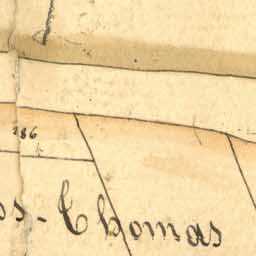 186
os-Thomas